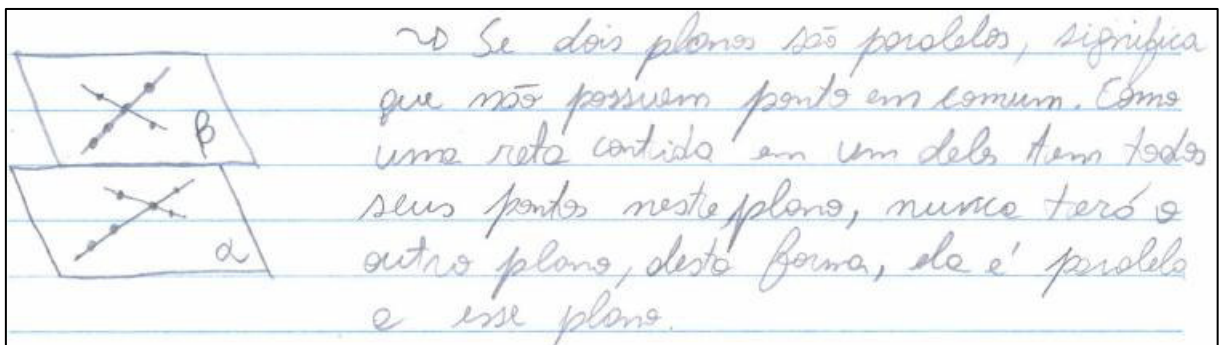 ~D Se dois planos são paralelos, significa
que não possuem ponto em comum. Como
uma reta contida em um deles tem todos
seus pontos neste plano, nunca terá o
outro plano, desta forma, ela é paralela
a esse plano.
β
α